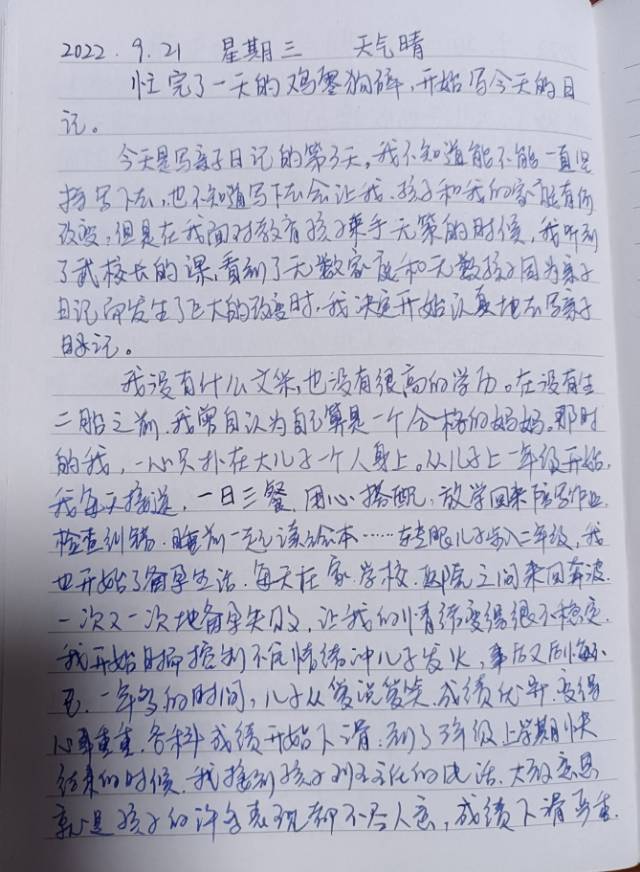 2022.9.21 星期三 天气晴
忙完了一天的鸡零狗碎,开始写今天的日
记。
今天是写亲子日记的第3天,我不知道能不能一直坚
持写下去,也不知道写下去会让我、孩子和我的家庭有何
改变,但是在我面对教育孩子束手无策的时候,我听到
了武校长的课,看到了无数家庭和无数孩子因为亲子
日记而发生了巨大的改变时,我决定开始认真地去写亲子
日记。
我没有什么文采,也没有很高的学历。在没有生
二胎之前,我常自认为自己算是一个合格的妈妈,那时
的我,一心只扑在大儿子一个人身上。从儿子上一年级开始,
我每天接送,一日三餐,用心搭配,放学回来陪写作业,
检查纠错,睡前一定读绘本……转眼儿子步入二年级,我
也开始了备孕生活,每天在家、学校、医院之间来回奔波,
一次又一次地备孕失败,让我的情绪变得很不稳定,
我开始时常控制不住情绪冲儿子发火,事后又后悔不
已,一年多的时间,儿子从爱说爱笑、成绩优异,变得
心事重重,各科成绩开始下滑;到了3年级上学期快
结束的时候,我接到孩子班主任的电话,大致意思
就是孩子的许多表现都不尽人意,成绩下滑严重,